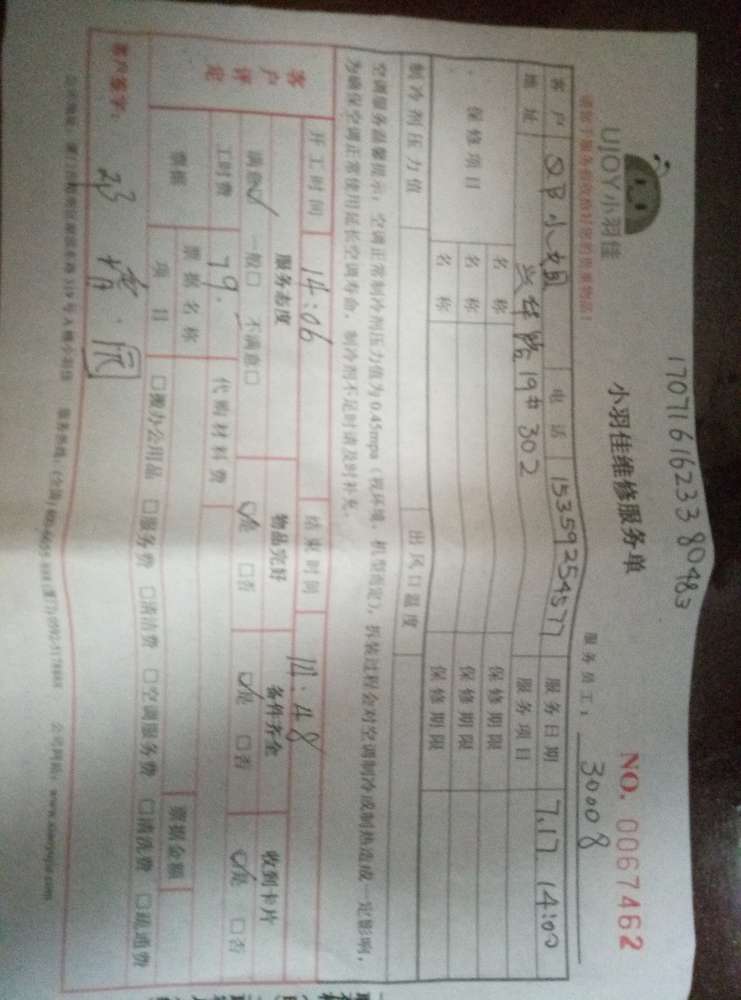 17071616233 80483
UJOY小羽佳
小羽佳维修服务单
NO. 0067462
服务员工: 30008
客户 小姐 电话 15359254577 服务日期 7.17 14:00
地址 19# 302 服务项目
保修项目 名称 保修期限
名称 保修期限
名称 保修期限
制冷剂压力值 出风口温度
空调服务温馨提示:空调正常制冷剂压力值为0.45mpa(视环境、机型而定),拆装过程会对空调制冷或制热造成一定影响,
为确保空调正常使用延长空调寿命,制冷剂不足时请及时补充。
开工时间 14:06 结束时间 14:48
客户评定 服务态度 物品完好 备件齐全 收到卡片
满意☑ 一般□ 不满意□ ☑是 □否 ☑是 □否 ☑是 □否
工时费 79. 代购材料费
票据 票据名称 票据金额
项目 □搬办公用品 □服务费 □清洁费 □空调服务费 □清洗费 □疏通费
客户签字: